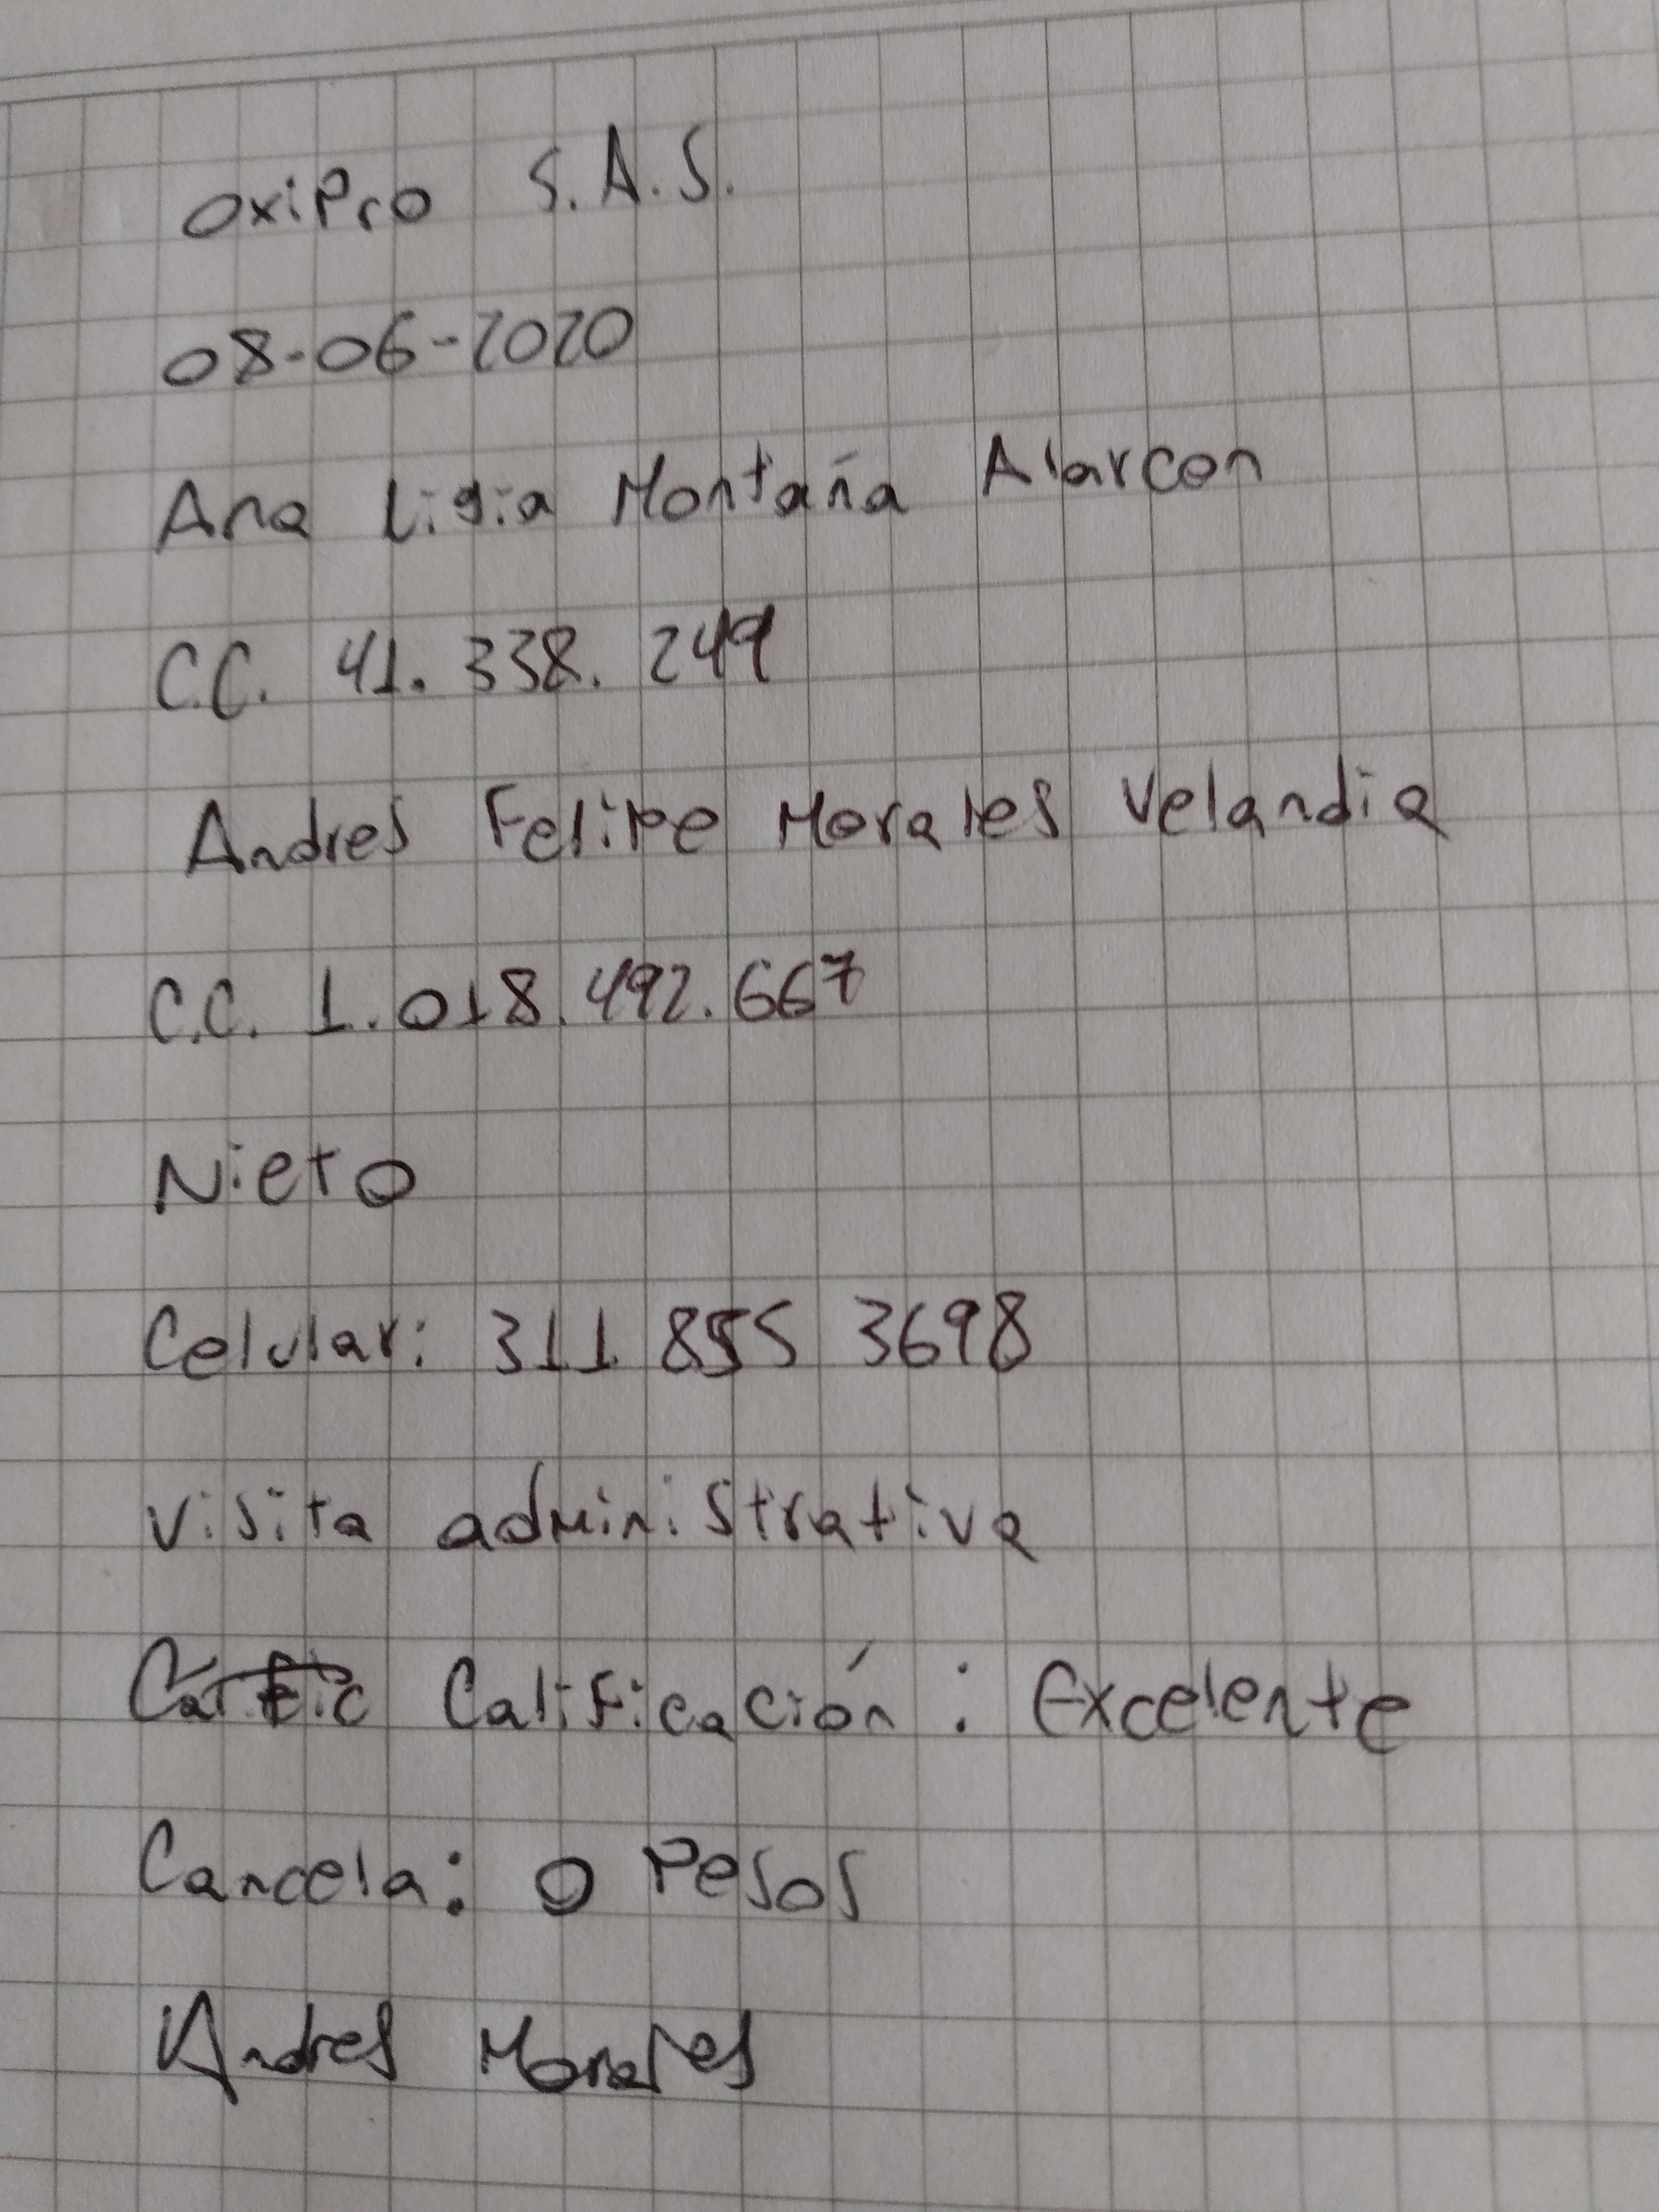 OxiPro S.A.S.
08-06-2020
Ana Ligia Montaña Alarcon
C.C. 41.338.249
Andres Felipe Morales Velandia
C.C. 1.018.492.667
Nieto
Celular: 311 855 3698
Visita administrativa
Calificación: Excelente
Cancela: 0 Pesos
Andres Morales